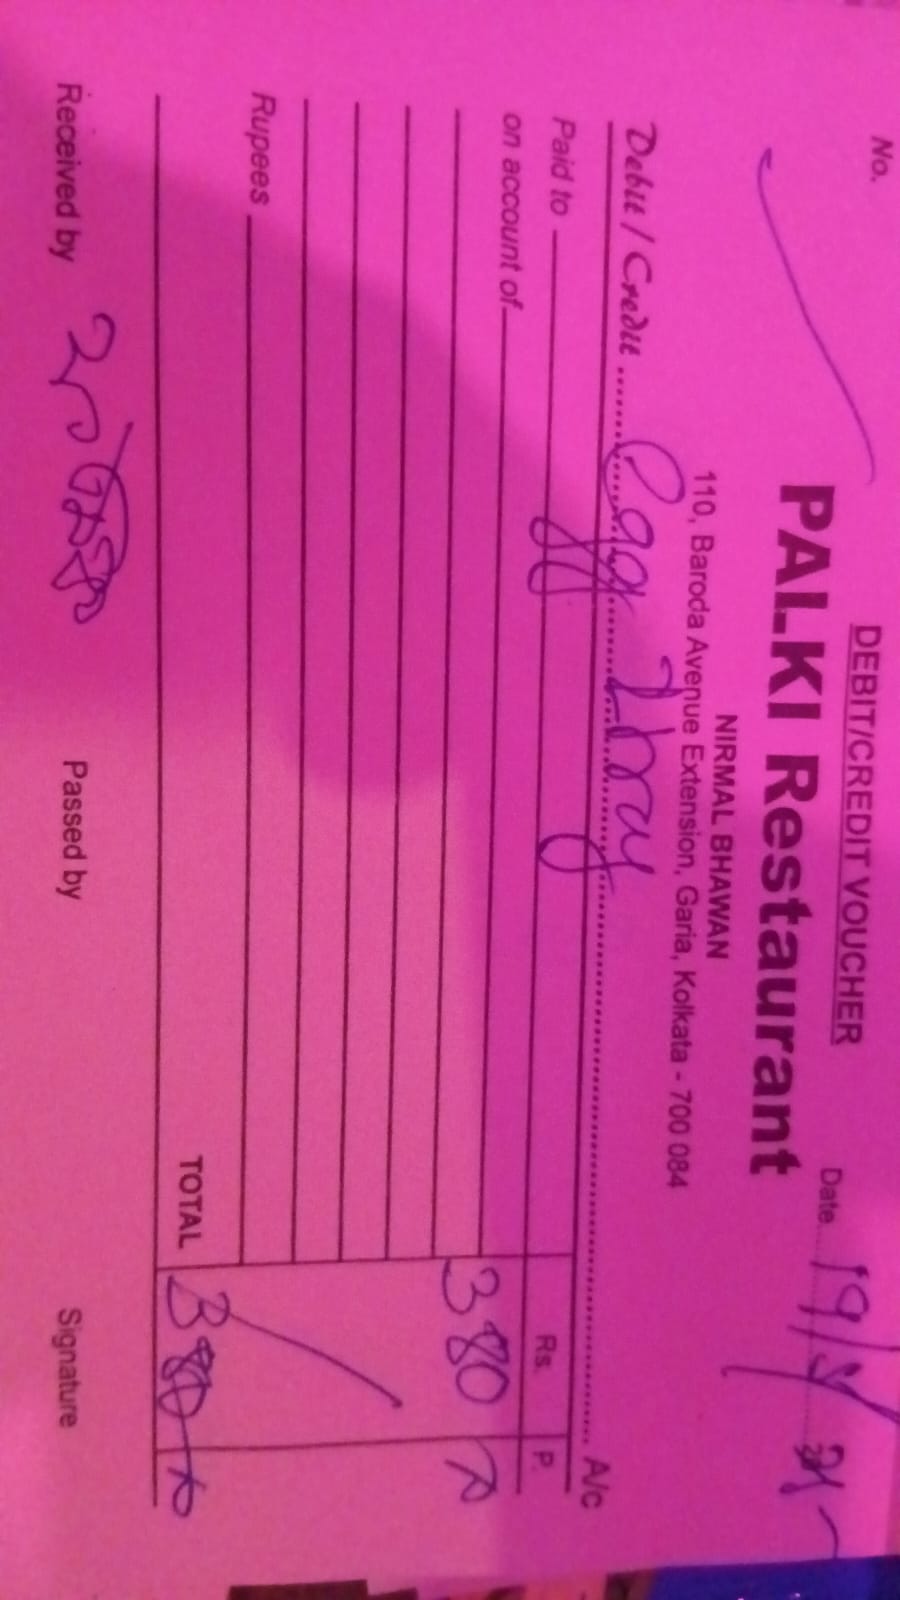 DEBIT/CREDIT VOUCHER
No.
Date
PALKI Restaurant
NIRMAL BHAWAN
110, Baroda Avenue Extension, Garia, Kolkata - 700 084
Debit / Credit Egg 2 tray A/c
Paid to
Rs. P.
on account of
380
Rupees
TOTAL 380
Received by Passed by Signature